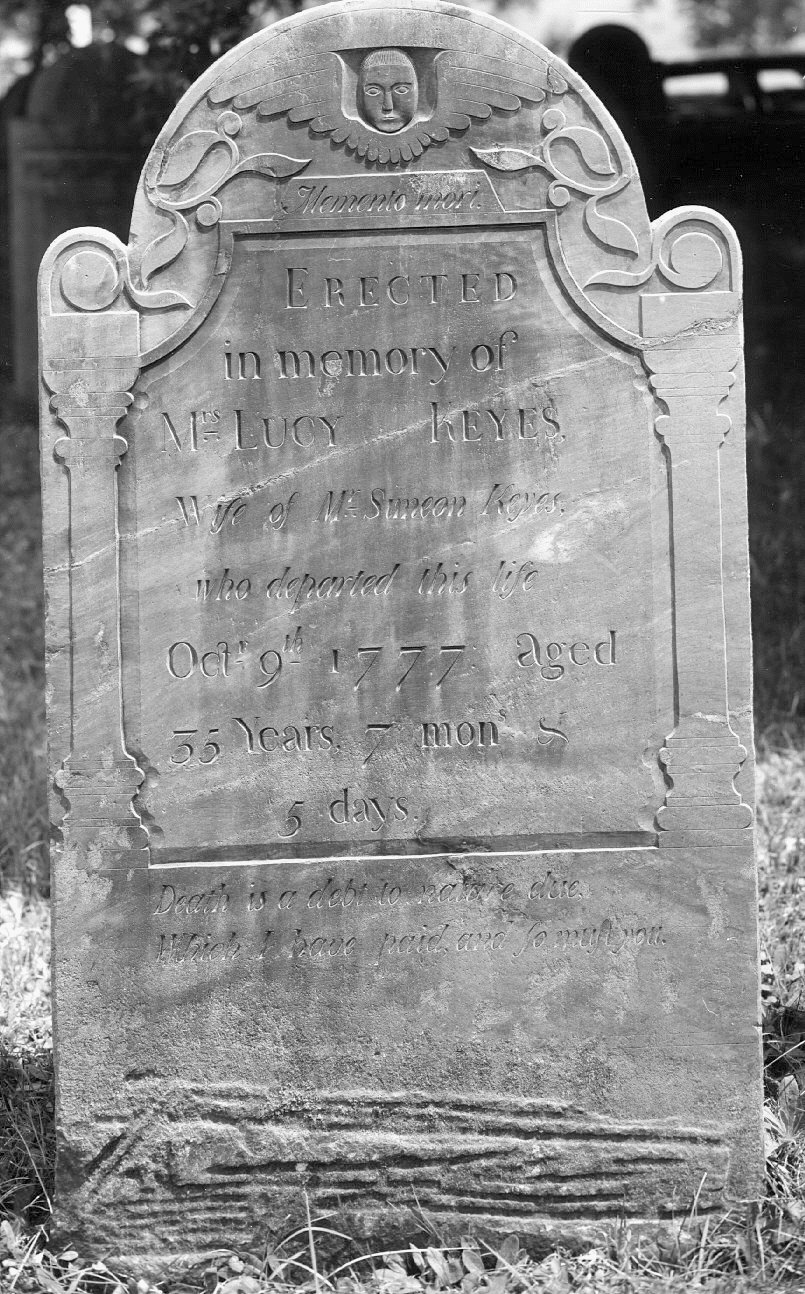 Memento mori.
ERECTED
in memory of
Mrs LUCY KEYES,
Wife of Mr. Simeon Keyes.
who departed this life
Octr 9th 1777. aged
35 Years. 7 mons &
5 days.
Death is a debt to nature due,
Which I have paid, and ſo muſt you.